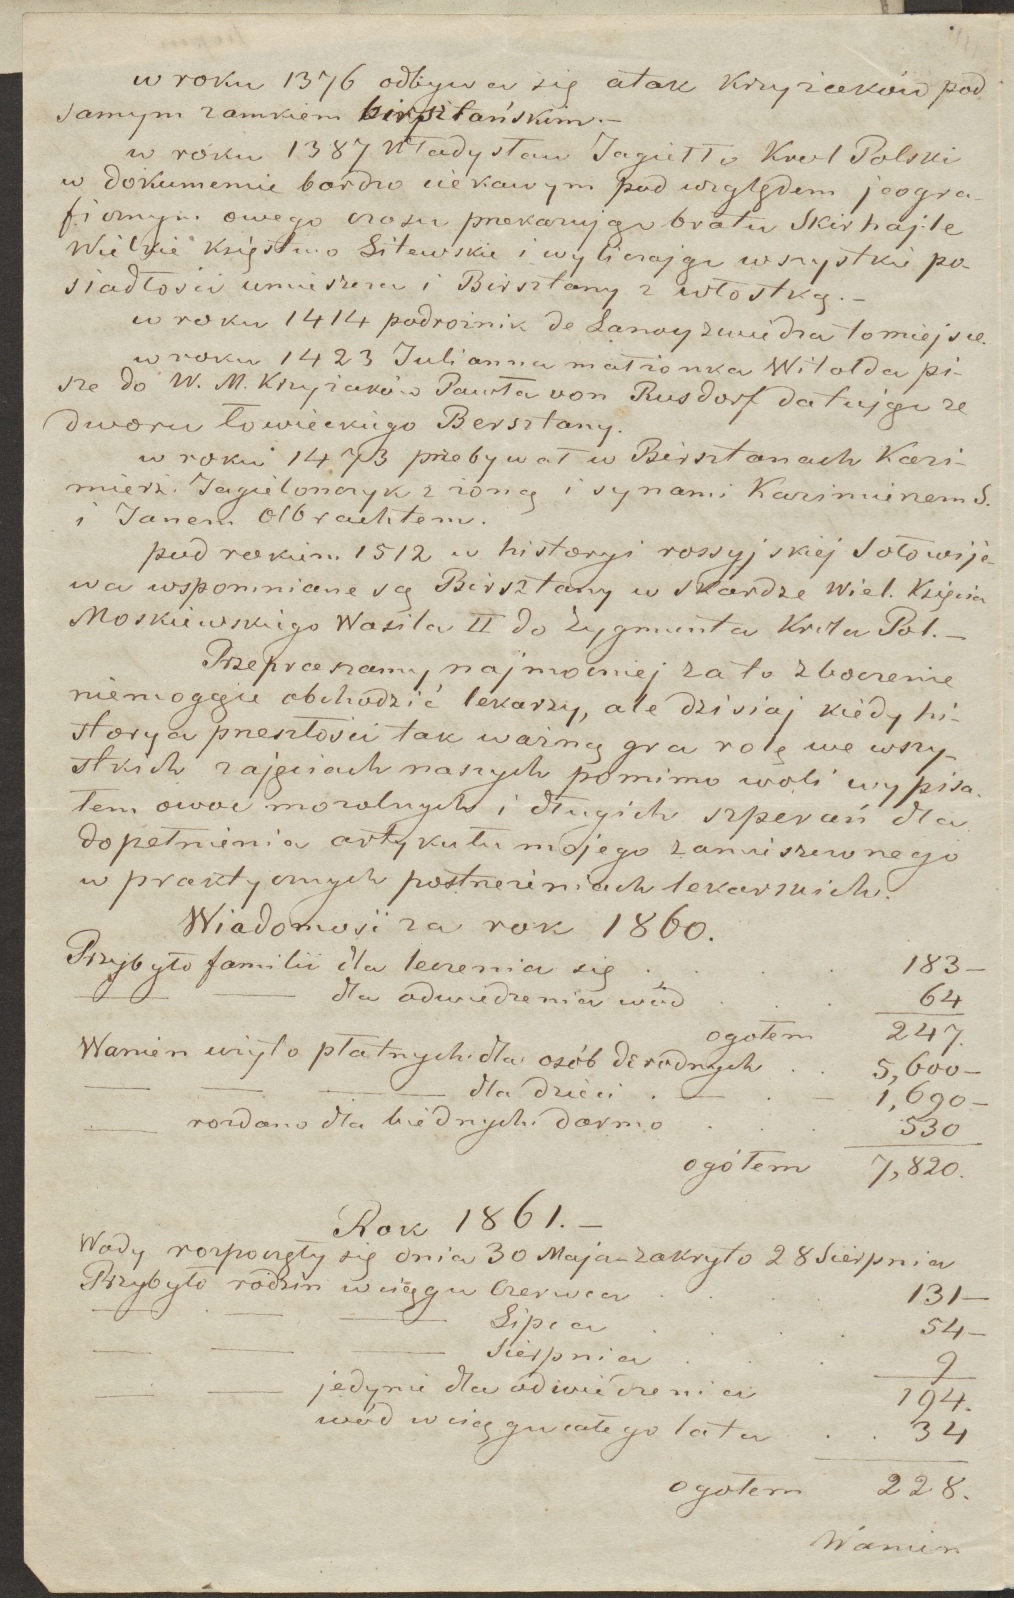 w roku 1376 odbywa się atak Krzyżaków pod
samym zamkiem birsztańskim.—
w roku 1387 Władysław Jagiełło Krol Polski
w dokumencie bardzo ciekawym pod względem jeogra-
ficznym owego czasu przekazując bratu Skirhajle
Wielkie Księstwo Litewskie i wyliczając wszystkie po-
siadłości umieszcza i Birsztany z włostką.—
w roku 1414 podrożnik de Lanoy zwiedza to miejsce.
w roku 1423 Julianna małżonka Witolda pi-
sze do W. M. Krzyżaków Pawła von Rusdorf datując ze
dworu łowieckiego Bersztany.
w roku 1473 przebywał w Birsztanach Kazi-
mierz Jagielonczyk z żoną i synami Kazimierzem S.
i Janem Olbrachtem.
pod rokiem 1512 w historyi rossyjskiej Sołowije-
wa wspomniane są Birsztany w skardze Wiel. Księcia
Moskiewskiego Wasila II do Zygmunta Króla Pol.—
Przepraszamy najmocniej za to zboczenie
niemogące obchodzić lekarzy, ale dzisiaj kiedy hi-
storya przeszłości tak ważną gra rolę we wszy-
stkich zajęciach naszych pomimo woli wypisa-
łem owoc mozolnych i długich szperań dla
dopełnienia artykułu mojego zamieszczonego
w praktycznych postrzeżeniach lekarskich.
Wiadomośi za rok 1860.
Przybyło familii dla leczenia się . . . . 183—
— — dla odwiedzenia wód . . . 64
ogołem 247.
Wanien wzięto płatnych dla osób dorodnych . . 5,600—
— — — dla dzieci . — . — 1,690—
— rozdano dla biednych darmo . . . 530
ogółem 7,820.
Rok 1861.—
Wody rozpoczęły się dnia 30 Maja—zakryto 28 Sierpnia
Przybyło rodzin w ciągu Czerwca . . . 131—
— — — Lipca . . . 54—
— — — Sierpnia . . . 9
— — jedynie dla odwiedzenia 194.
wód w ciągu całego lata . . 34
ogołem 228.
Wanien